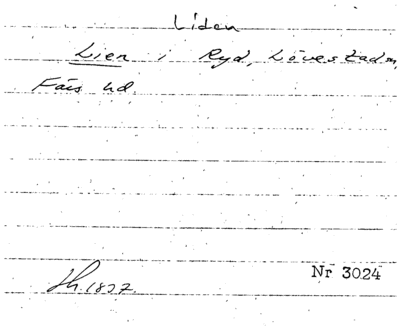 Liden
Lien i Ryd, Lövestad sn,
Färs hd.
Nr 3024
Jh. 1837.